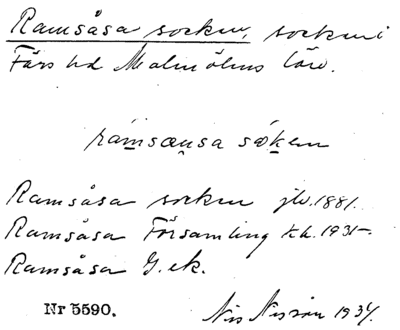 Ramsåsa socken, socken i
Färs hd Malmöhus län.
ràmsæṇsa sǿken
Ramsåsa socken jb. 1881.
Ramsåsa Församling kb. 1931-
Ramsåsa G. ek.
Nr 5590.
Nils 1934.